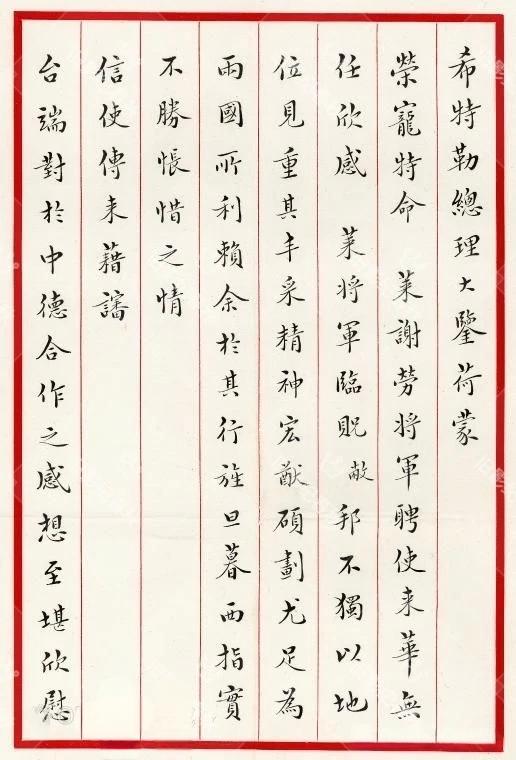 希特勒總理大鑒荷蒙
榮寵特命 萊謝勞將軍聘使来華無
任欣感 萊將軍臨貺敝邦不獨以地
位見重其丰采精神宏猷碩劃尤足為
兩國所利賴余於其行旌旦暮西指實
不勝悵惜之情
信使傳来藉讅
台端對於中德合作之感想至堪欣慰